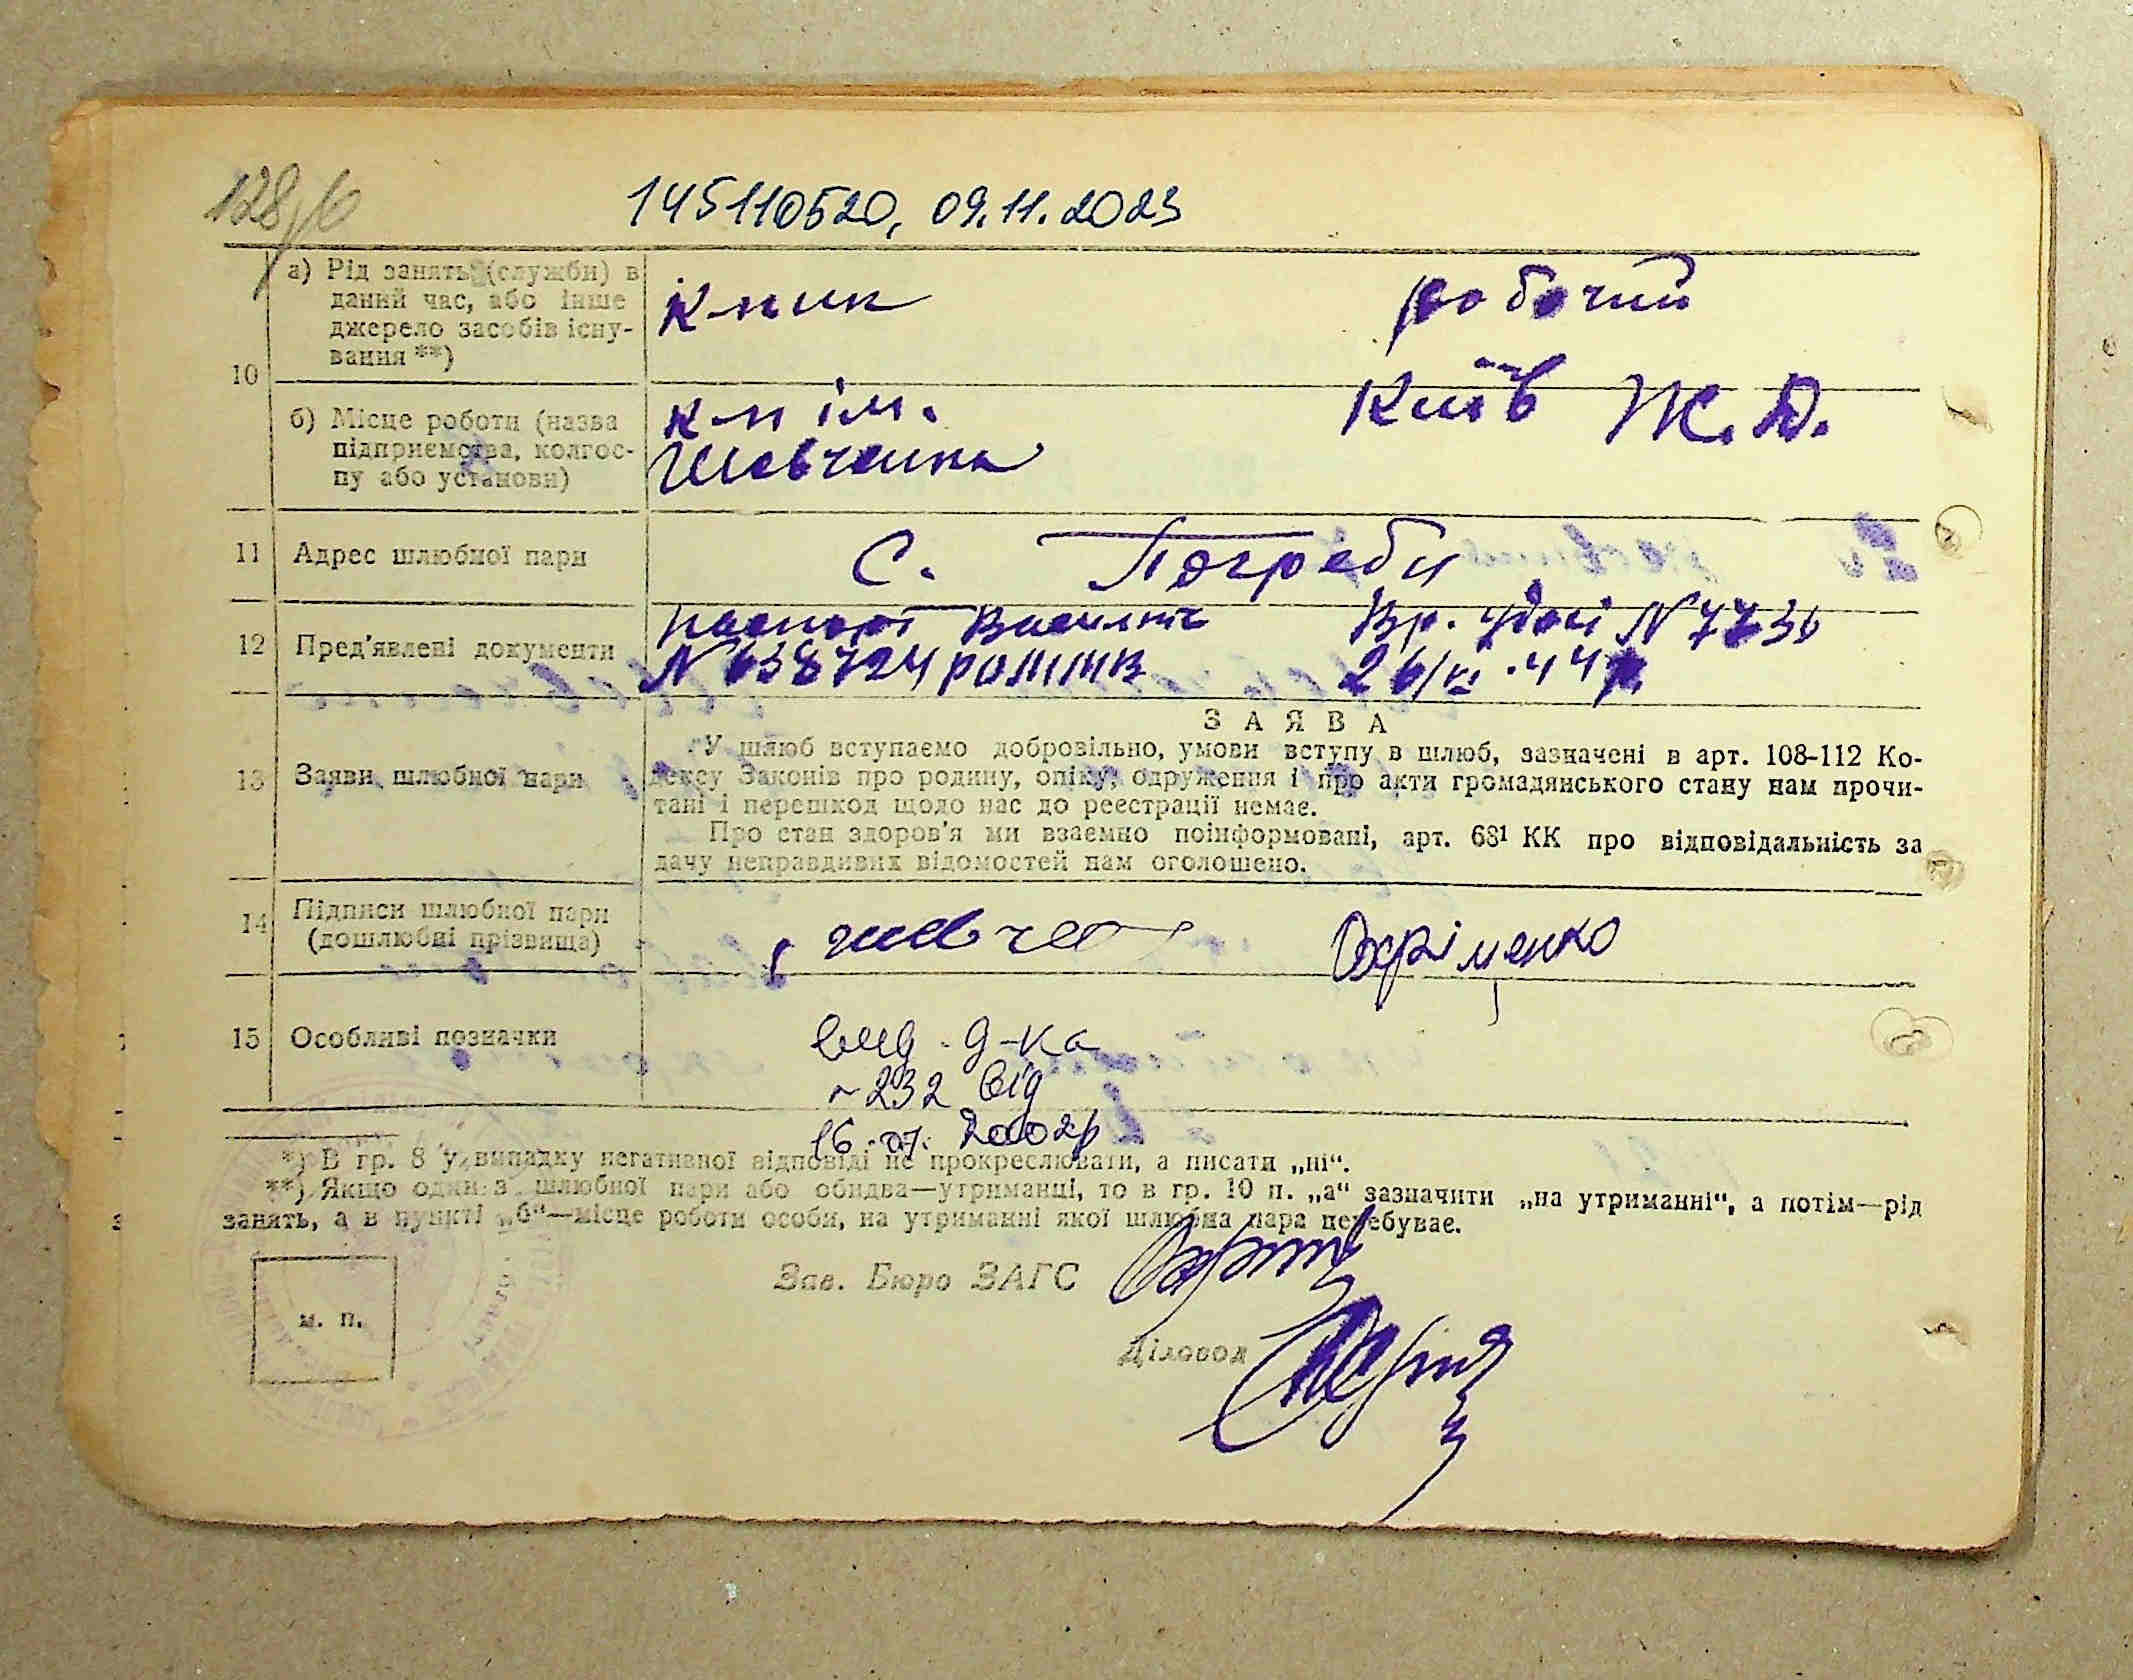 128
145110520, 09.11.2023
10
а) Рід занять (служби) в даний час, або інше джерело засобів існування **)
робочий
б) Місце роботи (назва підприємства, колгоспу або установи)
к-п ім. Шевченка
Київ Ж.Д.
11 Адрес шлюбної пари
С. Погреби
12 Пред'явлені документи
паспорт
N 638724
Вр. удост N
26/VI-44р.
13 Заяви шлюбної пари
ЗАЯВА
У шлюб вступаємо добровільно, умови вступу в шлюб, зазначені в арт. 108-112 Ко-
дексу Законів про родину, опіку, одруження і про акти громадянського стану нам прочи-
тані і перешкод щодо нас до реєстрації немає.
Про стан здоров'я ми взаємно поінформовані, арт. 68¹ КК про відповідальність за
дачу неправдивих відомостей нам оголошено.
14 Підписи шлюбної пари
(дошлюбні прізвища)
Охріменко
15 Особливі позначки
вид. д-ка
~ 232 від
16.07. 2002р
*) В гр. 8 у випадку негативної відповіді не прокреслювати, а писати „ні“.
**) Якщо один з шлюбної пари або обидва—утриманці, то в гр. 10 п. „а“ зазначити „на утриманні“, а потім—рід
занять, а в пункті „б“—місце роботи особи, на утриманні якої шлюбна пара перебуває.
Зав. Бюро ЗАГС
м. п.
Діловод